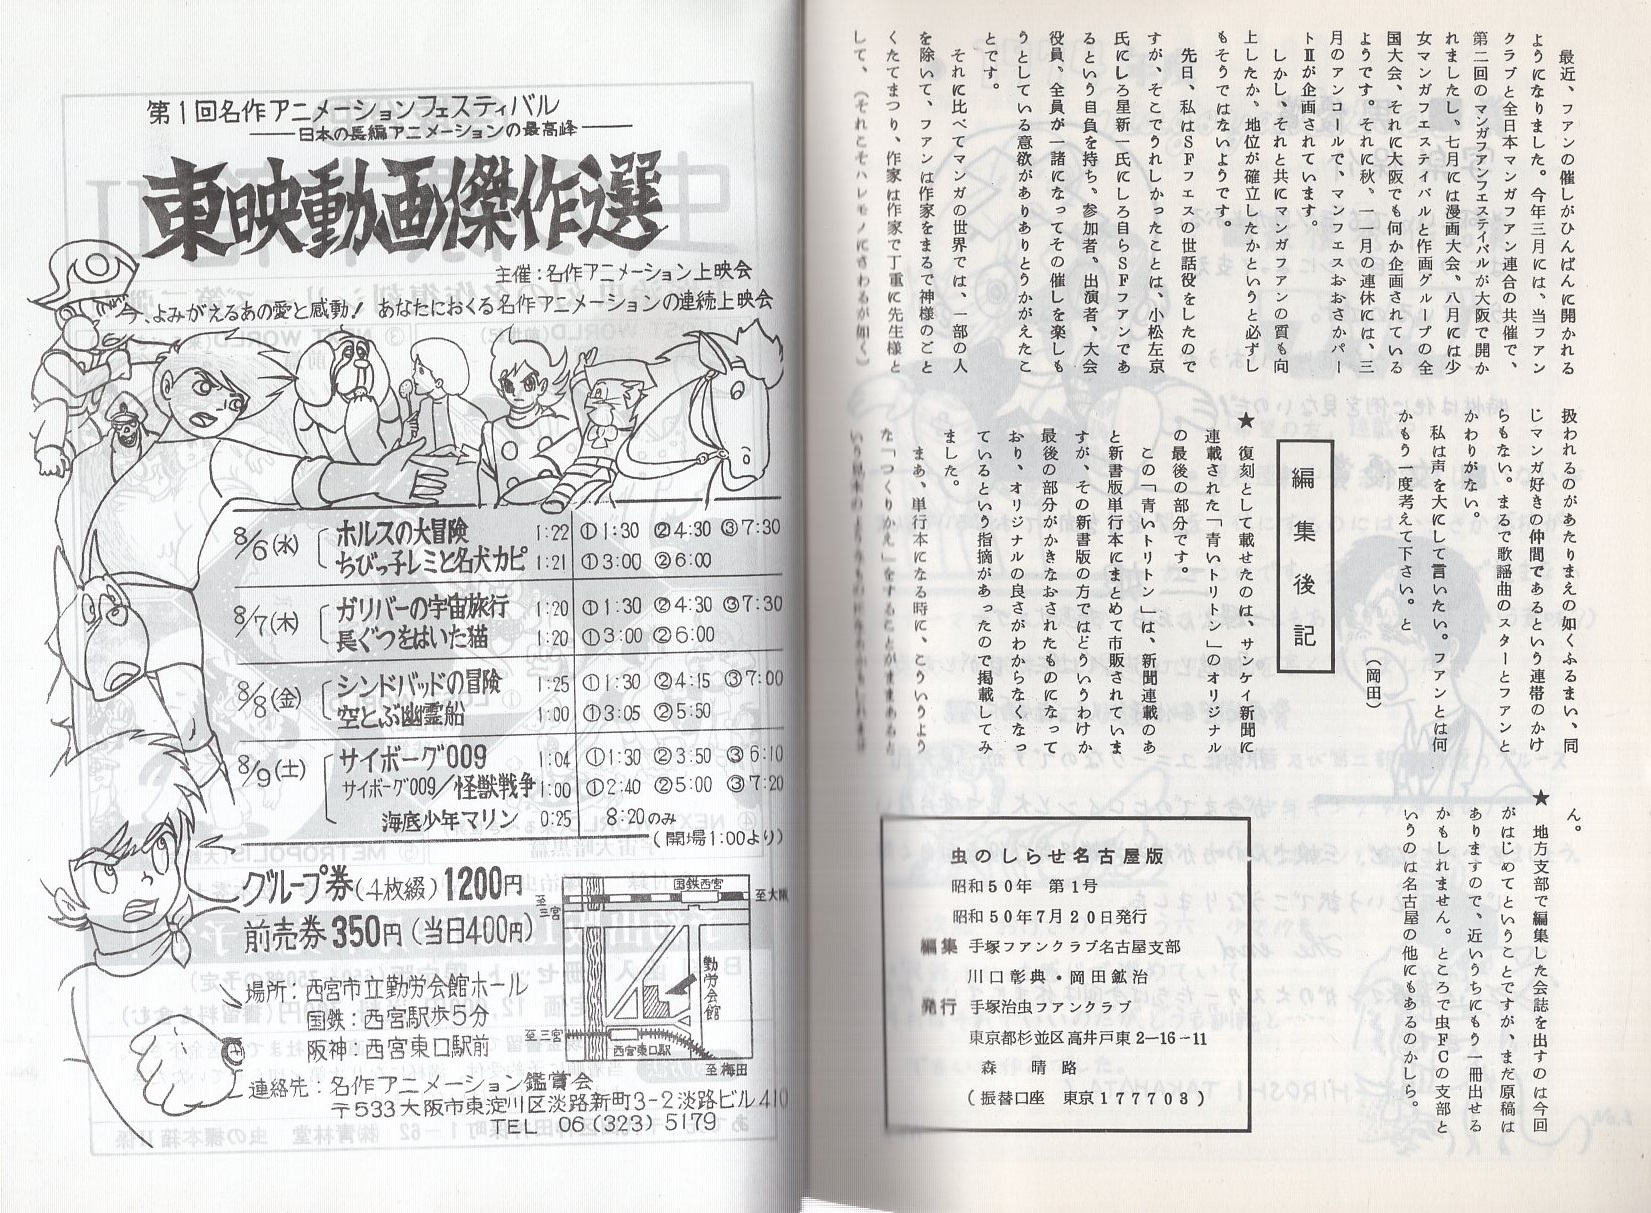 最近、ファンの催しがひんぱんに開かれる
ようになりました。今年三月には、当ファン
クラブと全日本マンガファン連合の共催で、
第二回のマンガファンフェスティバルが大阪で開か
れましたし、七月には漫画大会、八月には少
女マンガフェスティバルと作画グループの全
国大会、それに大阪でも何か企画されている
ようです。それに秋、一一月の連休には、三
月のアンコールで、マンフェスおおさかパー
トⅡが企画されています。
しかし、それと共にマンガファンの質も向
上したか、地位が確立したかというと必ずし
もそうではないようです。
先日、私はSFフェスの世話役をしたので
すが、そこでうれしかったことは、小松左京
氏にしろ星新一氏にしろ自らSFファンであ
るという自負を持ち、参加者、出演者、大会
役員、全員が一諸になってその催しを楽しも
うとしている意欲がありありとうかがえたこ
とです。
それに比べてマンガの世界では、一部の人
を除いて、ファンは作家をまるで神様のごと
くたてまつり、作家は作家で丁重に先生様と
して、(それこそハレモノにさわるが如く)
扱われるのがあたりまえの如くふるまい、同
じマンガ好きの仲間であるという連帯のかけ
らもない。まるで歌謡曲のスターとファンと
かわりがない。
私は声を大にして言いたい。ファンとは何
かもう一度考えて下さい。と
(岡田)
編集後記
★ 復刻として載せたのは、サンケイ新聞に
連載された「青いトリトン」のオリジナル
の最後の部分です。
この「青いトリトン」は、新聞連載のあ
と新書版単行本にまとめて市販されていま
すが、その新書版の方ではどういうわけか
最後の部分がかきなおされたものになって
おり、オリジナルの良さがわからなくなっ
ているという指摘があったので掲載してみ
ました。
まあ、単行本になる時に、こういうよう
な「つくりかえ」をすることがままあると
ん。
★ 地方支部で編集した会誌を出すのは今回
がはじめてということですが、まだ原稿は
ありますので、近いうちにもう一冊出せる
かもしれません。ところで虫FCの支部と
いうのは名古屋の他にもあるのかしら。
虫のしらせ名古屋版
昭和50年 第1号
昭和50年7月20日発行
編集 手塚ファンクラブ名古屋支部
川口彰典・岡田鉱治
発行 手塚治虫ファンクラブ
東京都杉並区高井戸東2—16—11
森 晴路
(振替口座 東京177703)
第1回名作アニメーションフェスティバル
——日本の長編アニメーションの最高峰——
東映動画傑作選
主催:名作アニメーション上映会
今、よみがえるあの愛と感動! あなたにおくる名作アニメーションの連続上映会
8/6(水) ホルスの大冒険 1:22 ①1:30 ②4:30 ③7:30
ちびっ子レミと名犬カピ 1:21 ①3:00 ②6:00
8/7(木) ガリバーの宇宙旅行 1:20 ①1:30 ②4:30 ③7:30
長ぐつをはいた猫 1:20 ①3:00 ②6:00
8/8(金) シンドバッドの冒険 1:25 ①1:30 ②4:15 ③7:00
空とぶ幽霊船 1:00 ①3:05 ②5:50
8/9(土) サイボーグ009 1:04 ①1:30 ②3:50 ③6:10
サイボーグ009/怪獣戦争 1:00 ①2:40 ②5:00 ③7:20
海底少年マリン 0:25 8:20のみ
(開場1:00より)
グループ券(4枚綴)1200円
前売券350円(当日400円)
場所:西宮市立勤労会館ホール
国鉄:西宮駅歩5分
阪神:西宮東口駅前
連絡先:名作アニメーション鑑賞会
〒533大阪市東淀川区淡路新町3-2淡路ビル410
TEL 06(323)5179
国鉄西宮
至三宮
至大阪
勤労会館
至三宮
西宮東口駅
至梅田